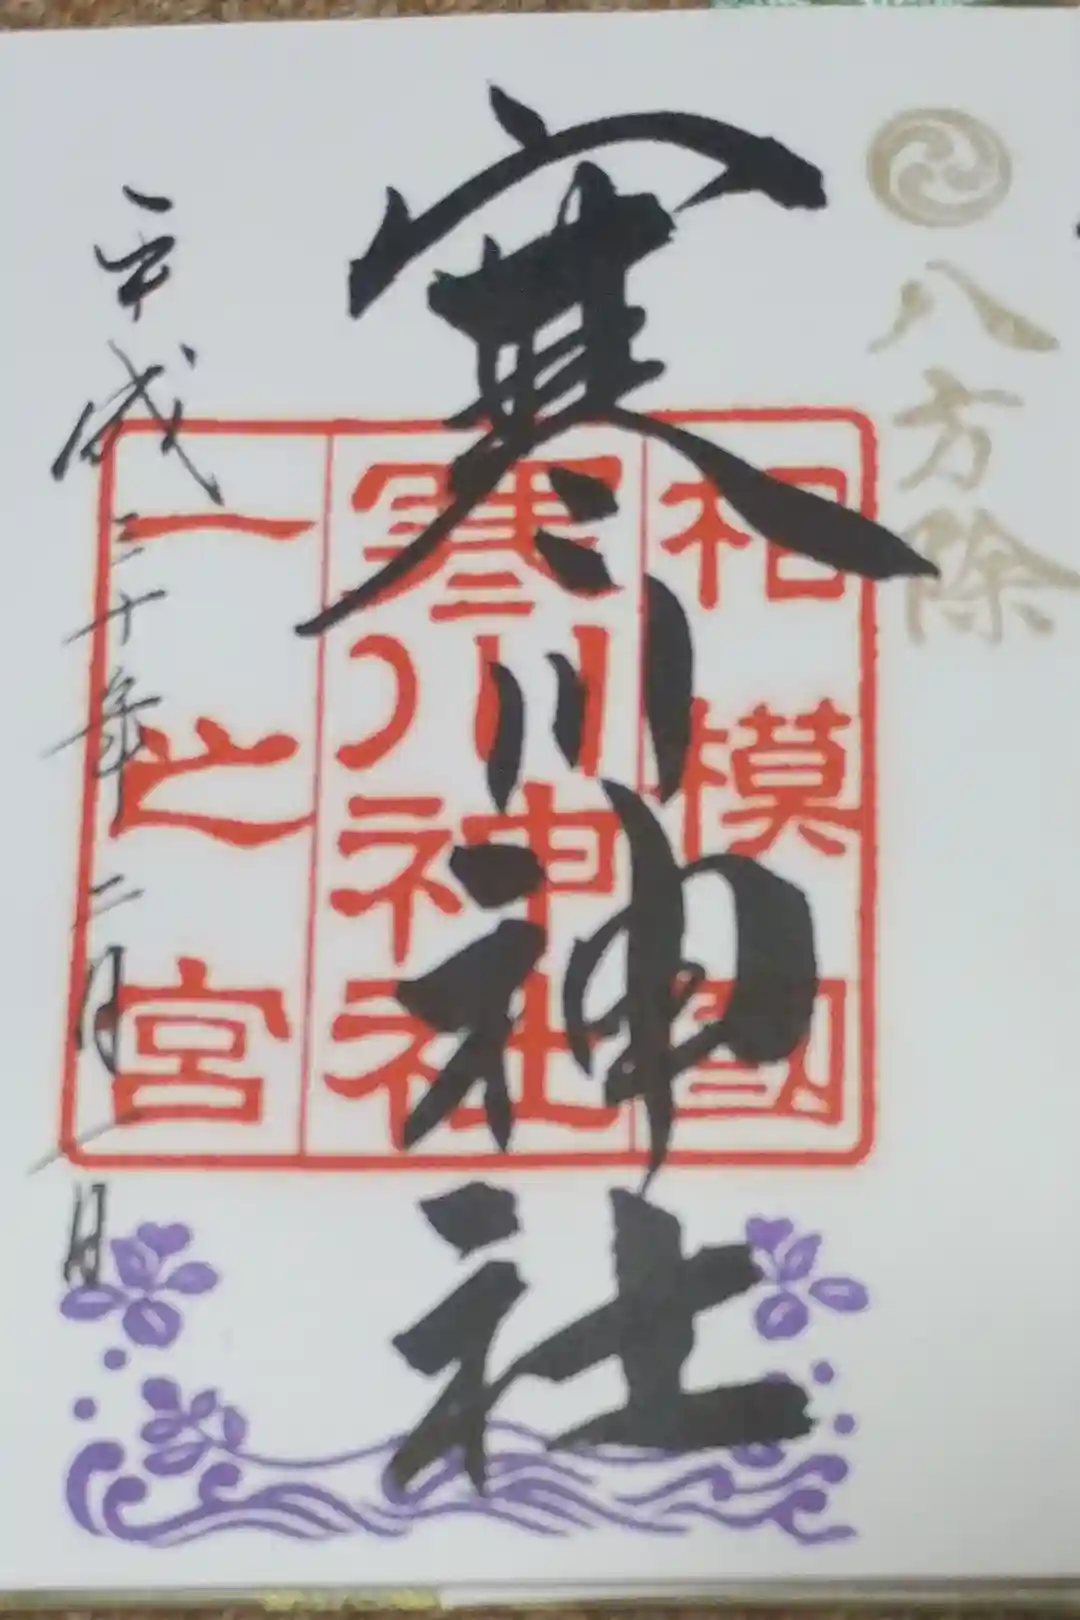 八方除
寒川神社
相模國
寒川神社
一之宮
平成三十年二月一日